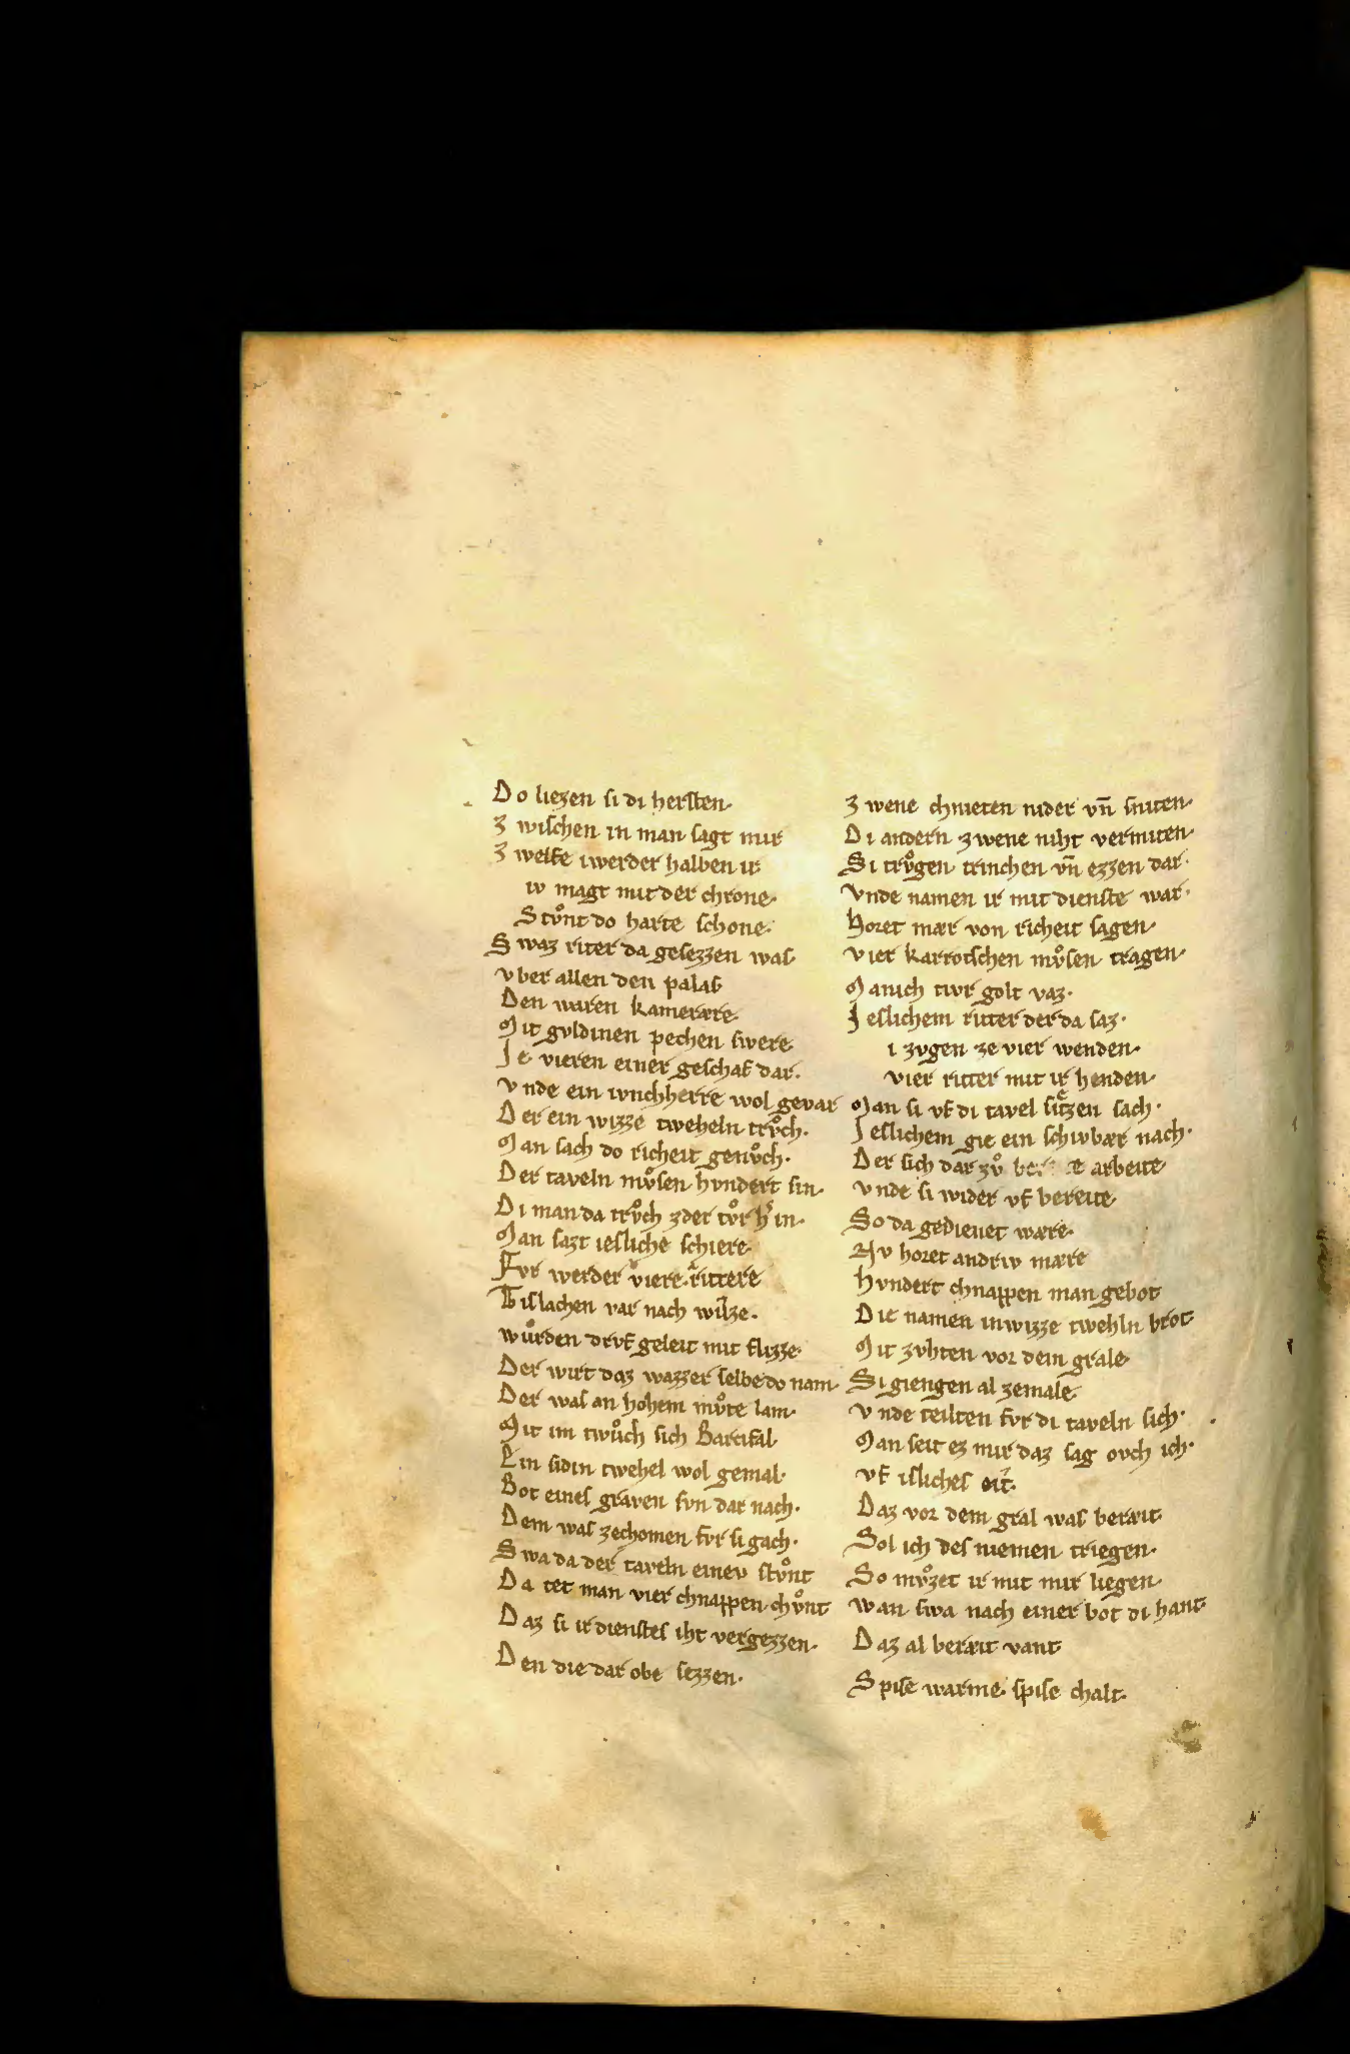 Do liezen si di hersten·
Zwischen in man sagt mir
Zwelfe iwerder halben ir
iv magt mit der chrone·
Stuͦnt do harte schone·
Swaz riter da gesezzen was
vber allen den palas
Den waren kamerære·
Mit gvldinen pechen swere·
Ie vieren einer geschaf dar·
vnde ein ivnchherre wol gevar
Der ein wizze tweheln trvͦch·
Man sach do richeit genvͦch·
Der taveln mvͦsen hvndert sin·
Di man da trvͦch zder tvͦr h̓in·
Man sazt iesliche schiere·
Fvr werder viere rittere
Tislachen var nach wize·
wurden drvf geleit mit flizze·
Der wirt daz wazzer selbe do nam·
Der was an hohem mvͦte lam·
Mit im twuͦch sich Parcifal
Ein sidin twehel wol gemal·
Bot eines graven svn dar nach·
Dem was zechomen fvr si gach·
Swa da der taveln einev stvͦnt
Da tet man vier chnappen chvͦnt
Daz si ir dienstes iht vergezzen·
Den die dar obe sezzen·
Zwene chnieten nider vn̄ sniten·
Di andern zwene niht vermiten·
Si trvͦgen trinchen vn̄ ezzen dar·
vnde namen ir mit dienste war·
Horet mær von richeit sagen·
vier karrotschen mvͦsen tragen·
Manich twr golt vaz·
Ieslichem ritter der da saz·
i zvgen ze vier wenden·
vier ritter mit ir henden·
Man si vf di tavel sitzen sach·
Ieslichem gie ein schivbær nach·
Der sich dar zvͦ arbeite
vnde si wider vf bereite·
So da gedienet wære·
Nv horet andriv mære
Hvndert chnappen man gebot
Die namen inwizze twehln brot
Mit zvhten vor dem grale·
Si giengen al zemale·
vnde teilten fvr di taveln sich·
Man seit ez mir daz sag ovch ich·
vf isliches
Daz vor dem gral was beræit·
Sol ich des niemen triegen·
So mvͦzet ir mit mir liegen·
wan swa nach einer bot di hant·
Daz al beræit vant·
Spise warme spise chalt·